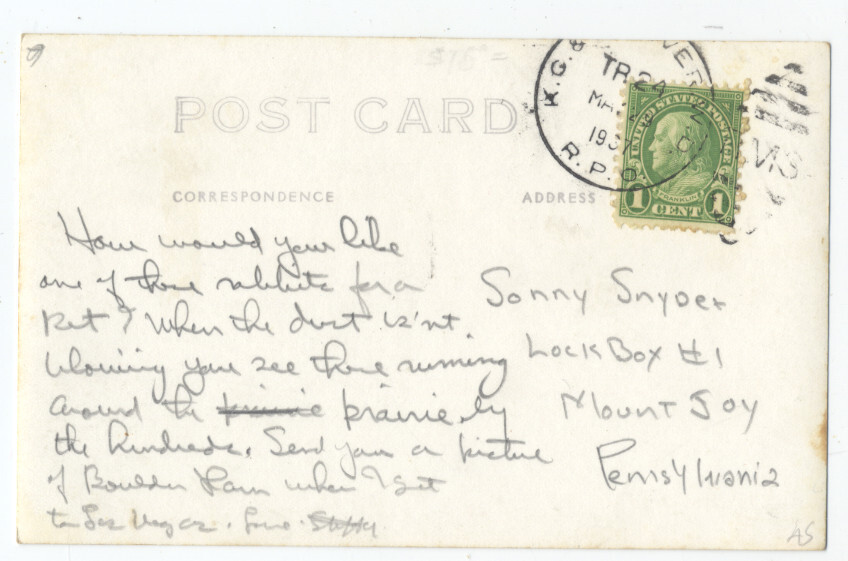 POST CARD
K.G. &
VER
TR.24
MA
193
R.P.O.
UNITED STATES POSTAGE
FRANKLIN
1 CENT 1
CORRESPONDENCE
ADDRESS
How would you like
one of those rabbits for a
Pet? When the dust is'nt
blowing you see those running
around the prairie prairie by
the hundreds. Send you a picture
of Boulder Dam when I get
to Las Vegas. Love.
Sonny Snyder
Lock Box #1
Mount Joy
Pennsylvania
AS